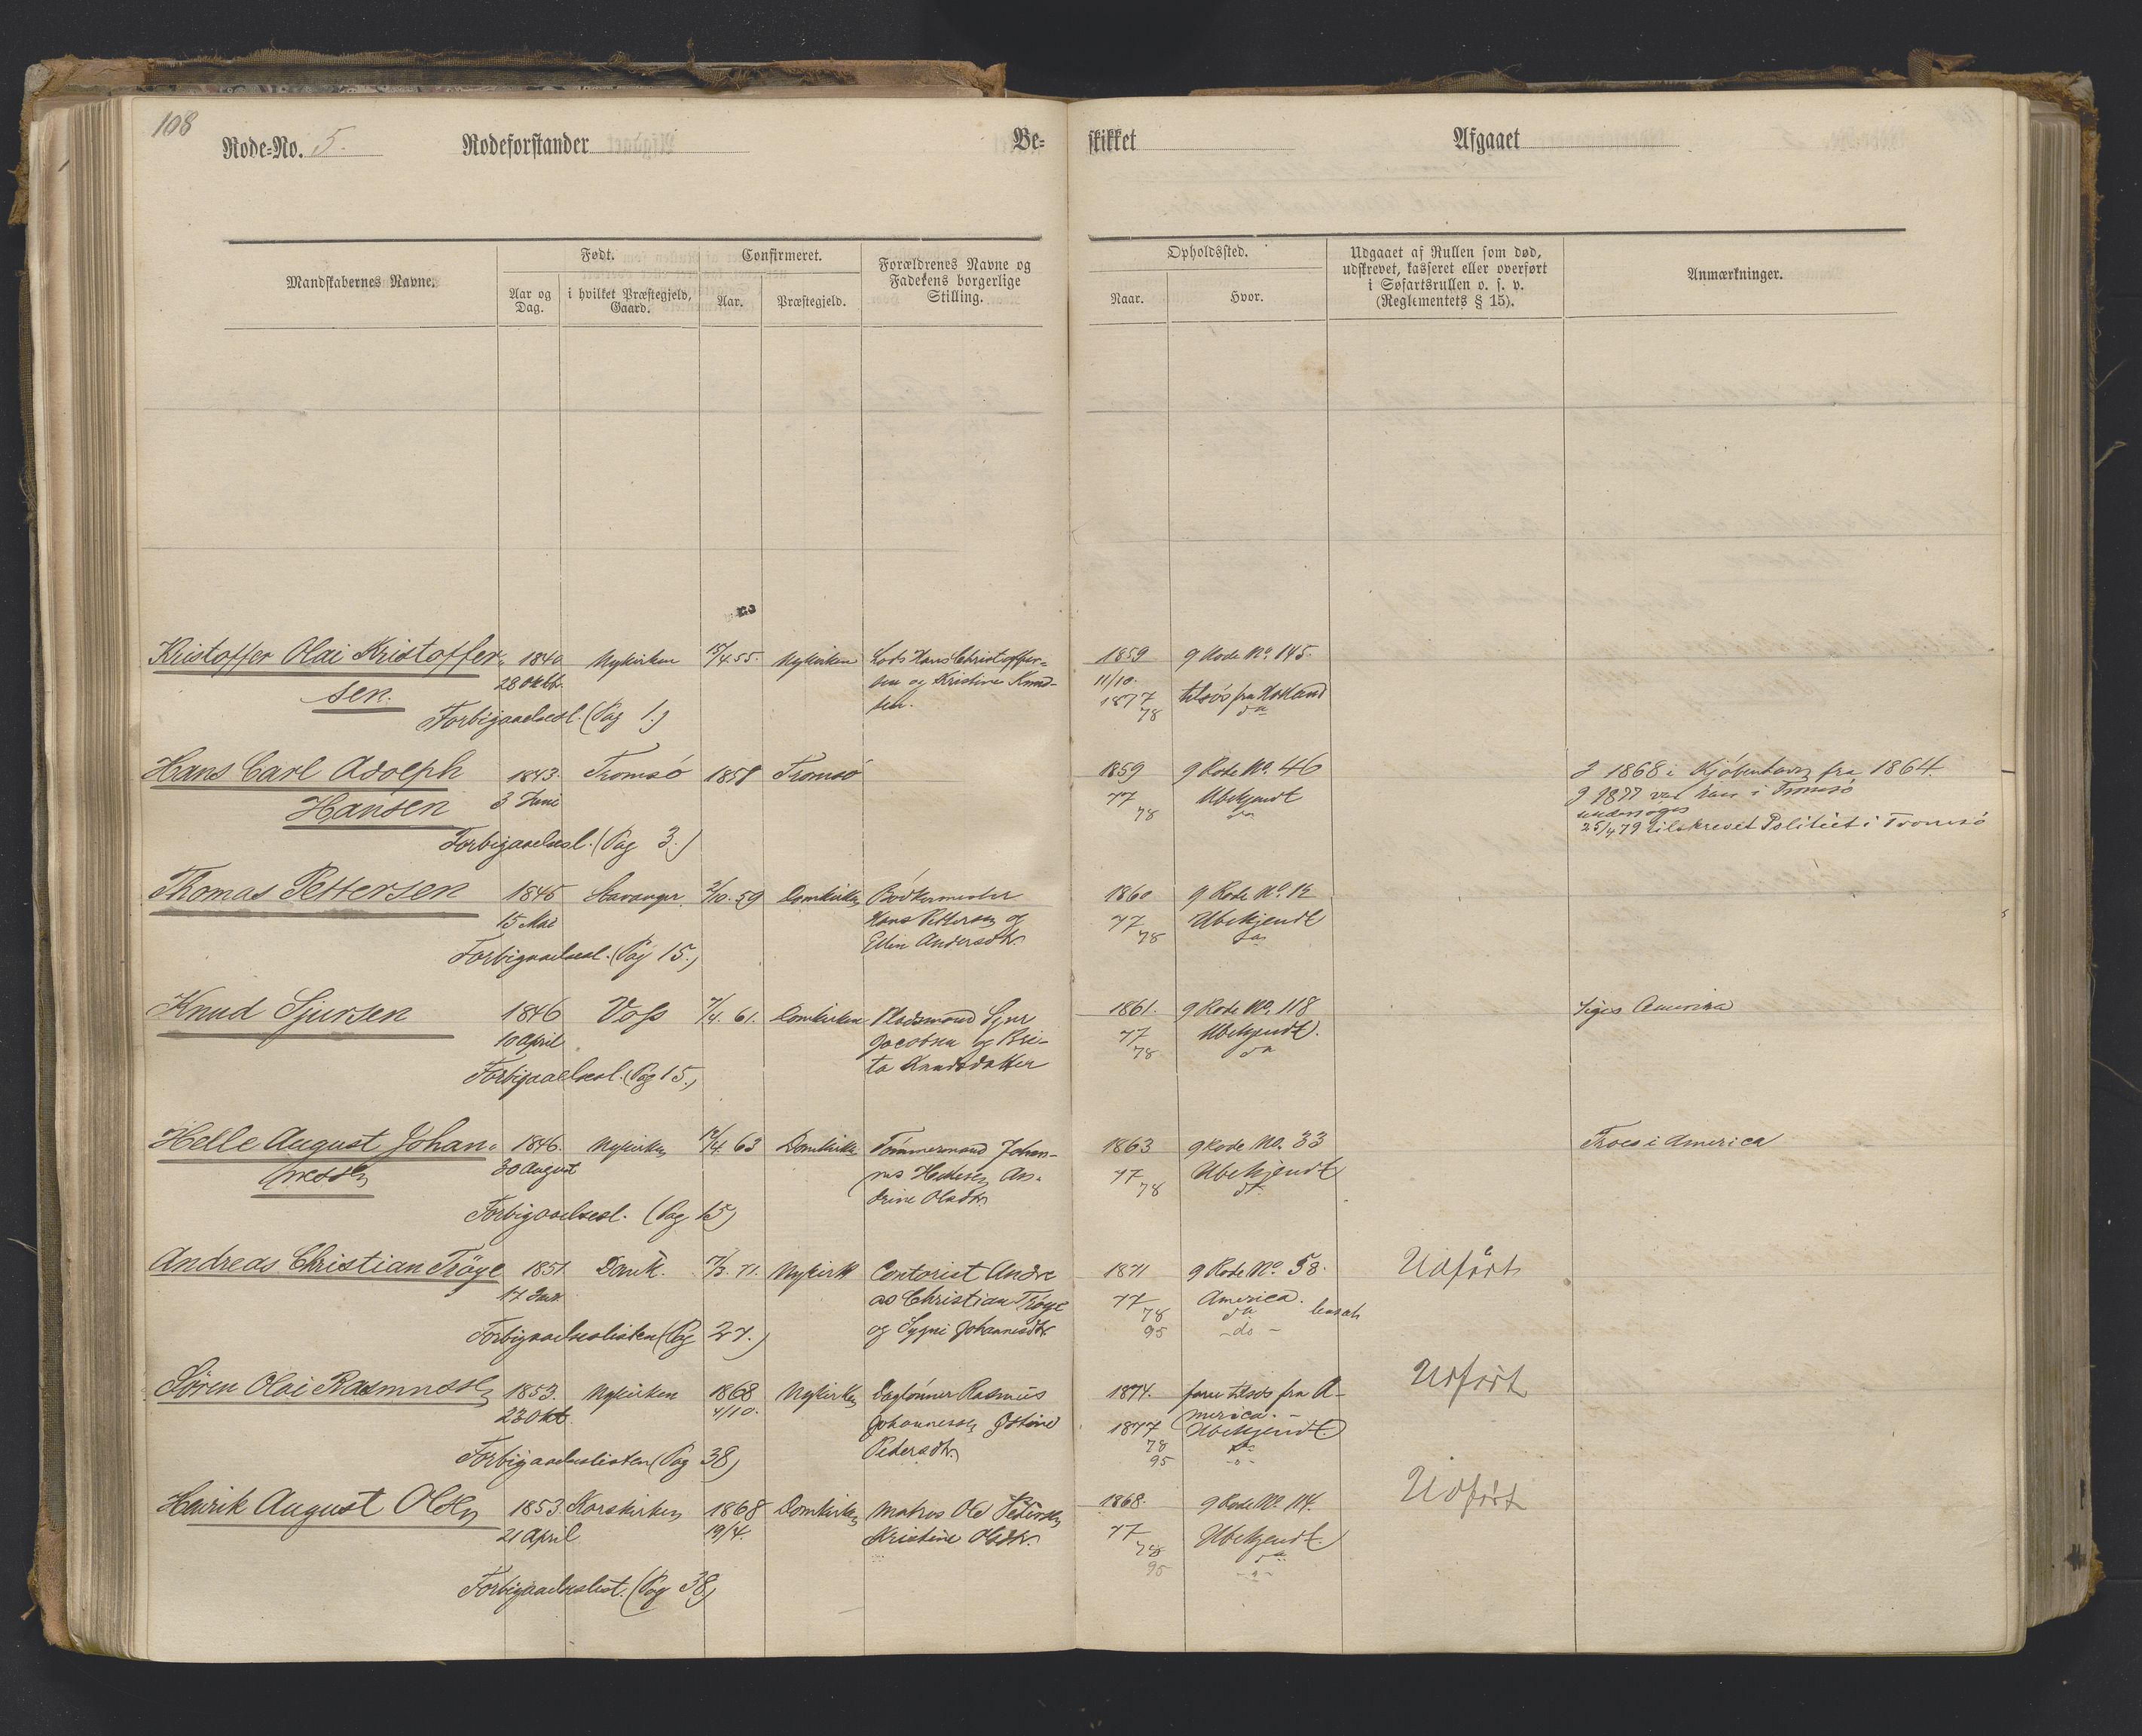 108
Rode-No. 5. Rodeforstander Be- skikket Afgaaet
Mandskabernes Navne. Født. Confirmeret. Forældrenes Navne og Fadekens borgerlige Stilling. Opholdssted. Udgaaet af Rullen som død, udskrevet, kasseret eller overført i Søfartsrullen o. s. v. (Reglementets § 15). Anmærkninger.
Aar og Dag. i hvilket Præstegjeld, Gaard. Aar. Præstegjeld. Naar. Hvor.
Kristoffer Olai Kristoffer- 1840 Nykirken /4.55. Nykirken Lods Hans Christoffer- 1859 g Rode No. 145.
sen. 28 Oktb. sen og Kristine Knud- 11/10.
sen. 1877 tilsøs fra
Forbigaaelsesl. (Pag 1.) 78 do
Hans Carl Adolph 1843. Tromsø 1858 Tromsø 1859 g Rode No. 46 J 1868 i Kjøbenhavn fra 1864
Hansen 3 Juni 77 Ubekjendt J 1877 var han i Tromsø
78 do undersøges
25/4 79 tilskrevet Politiet i Tromsø
Forbigaaelsesl. (Pag 3.)
Thomas Pettersen 1845 Stavanger /10. 59 Domkirken Bødkermester 1860 g Rode No. 12
15 Mai Hans Pettersen og 77 Ubekjendt
Ellin Andersdtr. 78 do
Forbigaaelsesl. (Pag 15.)
Knud Sjursen 1846 Voss 7/4. 61. Domkirken Pladsmand Sjur 1861. g Rode No. 118 Siges America
10 April Jacobsen og Bri- 77 Ubekjendt.
ta Knudsdatter 78 do
Forbigaaelsesl. (Pag 15.)
Helle August Johan- 1846. Nykirken 12/4. 63 Domkirken Tømmermand Johan- 1863 g Rode No. 33 Troes i America
nessen 30 August nes Hellesen, An- 77 Ubekjendt
drine Olsdtr. 78 do
Forbigaaelsesl. (Pag 15)
Andreas Christian Trøye 1851 Domk. /3. 71. Nykirk Contorist Andre 1871 g Rode No. 58. Udført
17 Jan as Christian Trøye 77 America.
78 do
og Sygni Johannesdtr. 95 - do -
Forbigaaelseslisten (Pag 27.)
Søren Olai Rasmussen 1853. Nykirken 1868 Nykirken Dagløнner Rasmus 1874. fare tilsøs fra A- Udført
23 Okt. 4/10. Johannessen, merica. -
1877 Ubekjendt.
Pedersdtr. 78 do
95 - o -
Forbigaaelseslisten (Pag 38)
Henrik August Olsen 1853. Korskirken 1868 Domkirken Matros Ole Petersen 1868. g Rode No 114. Udført
21 April 19/4. Kristine Olsdtr. 77 Ubekjendt.
78 do
95 - o -
Forbigaaelseslist. (Pag 38)